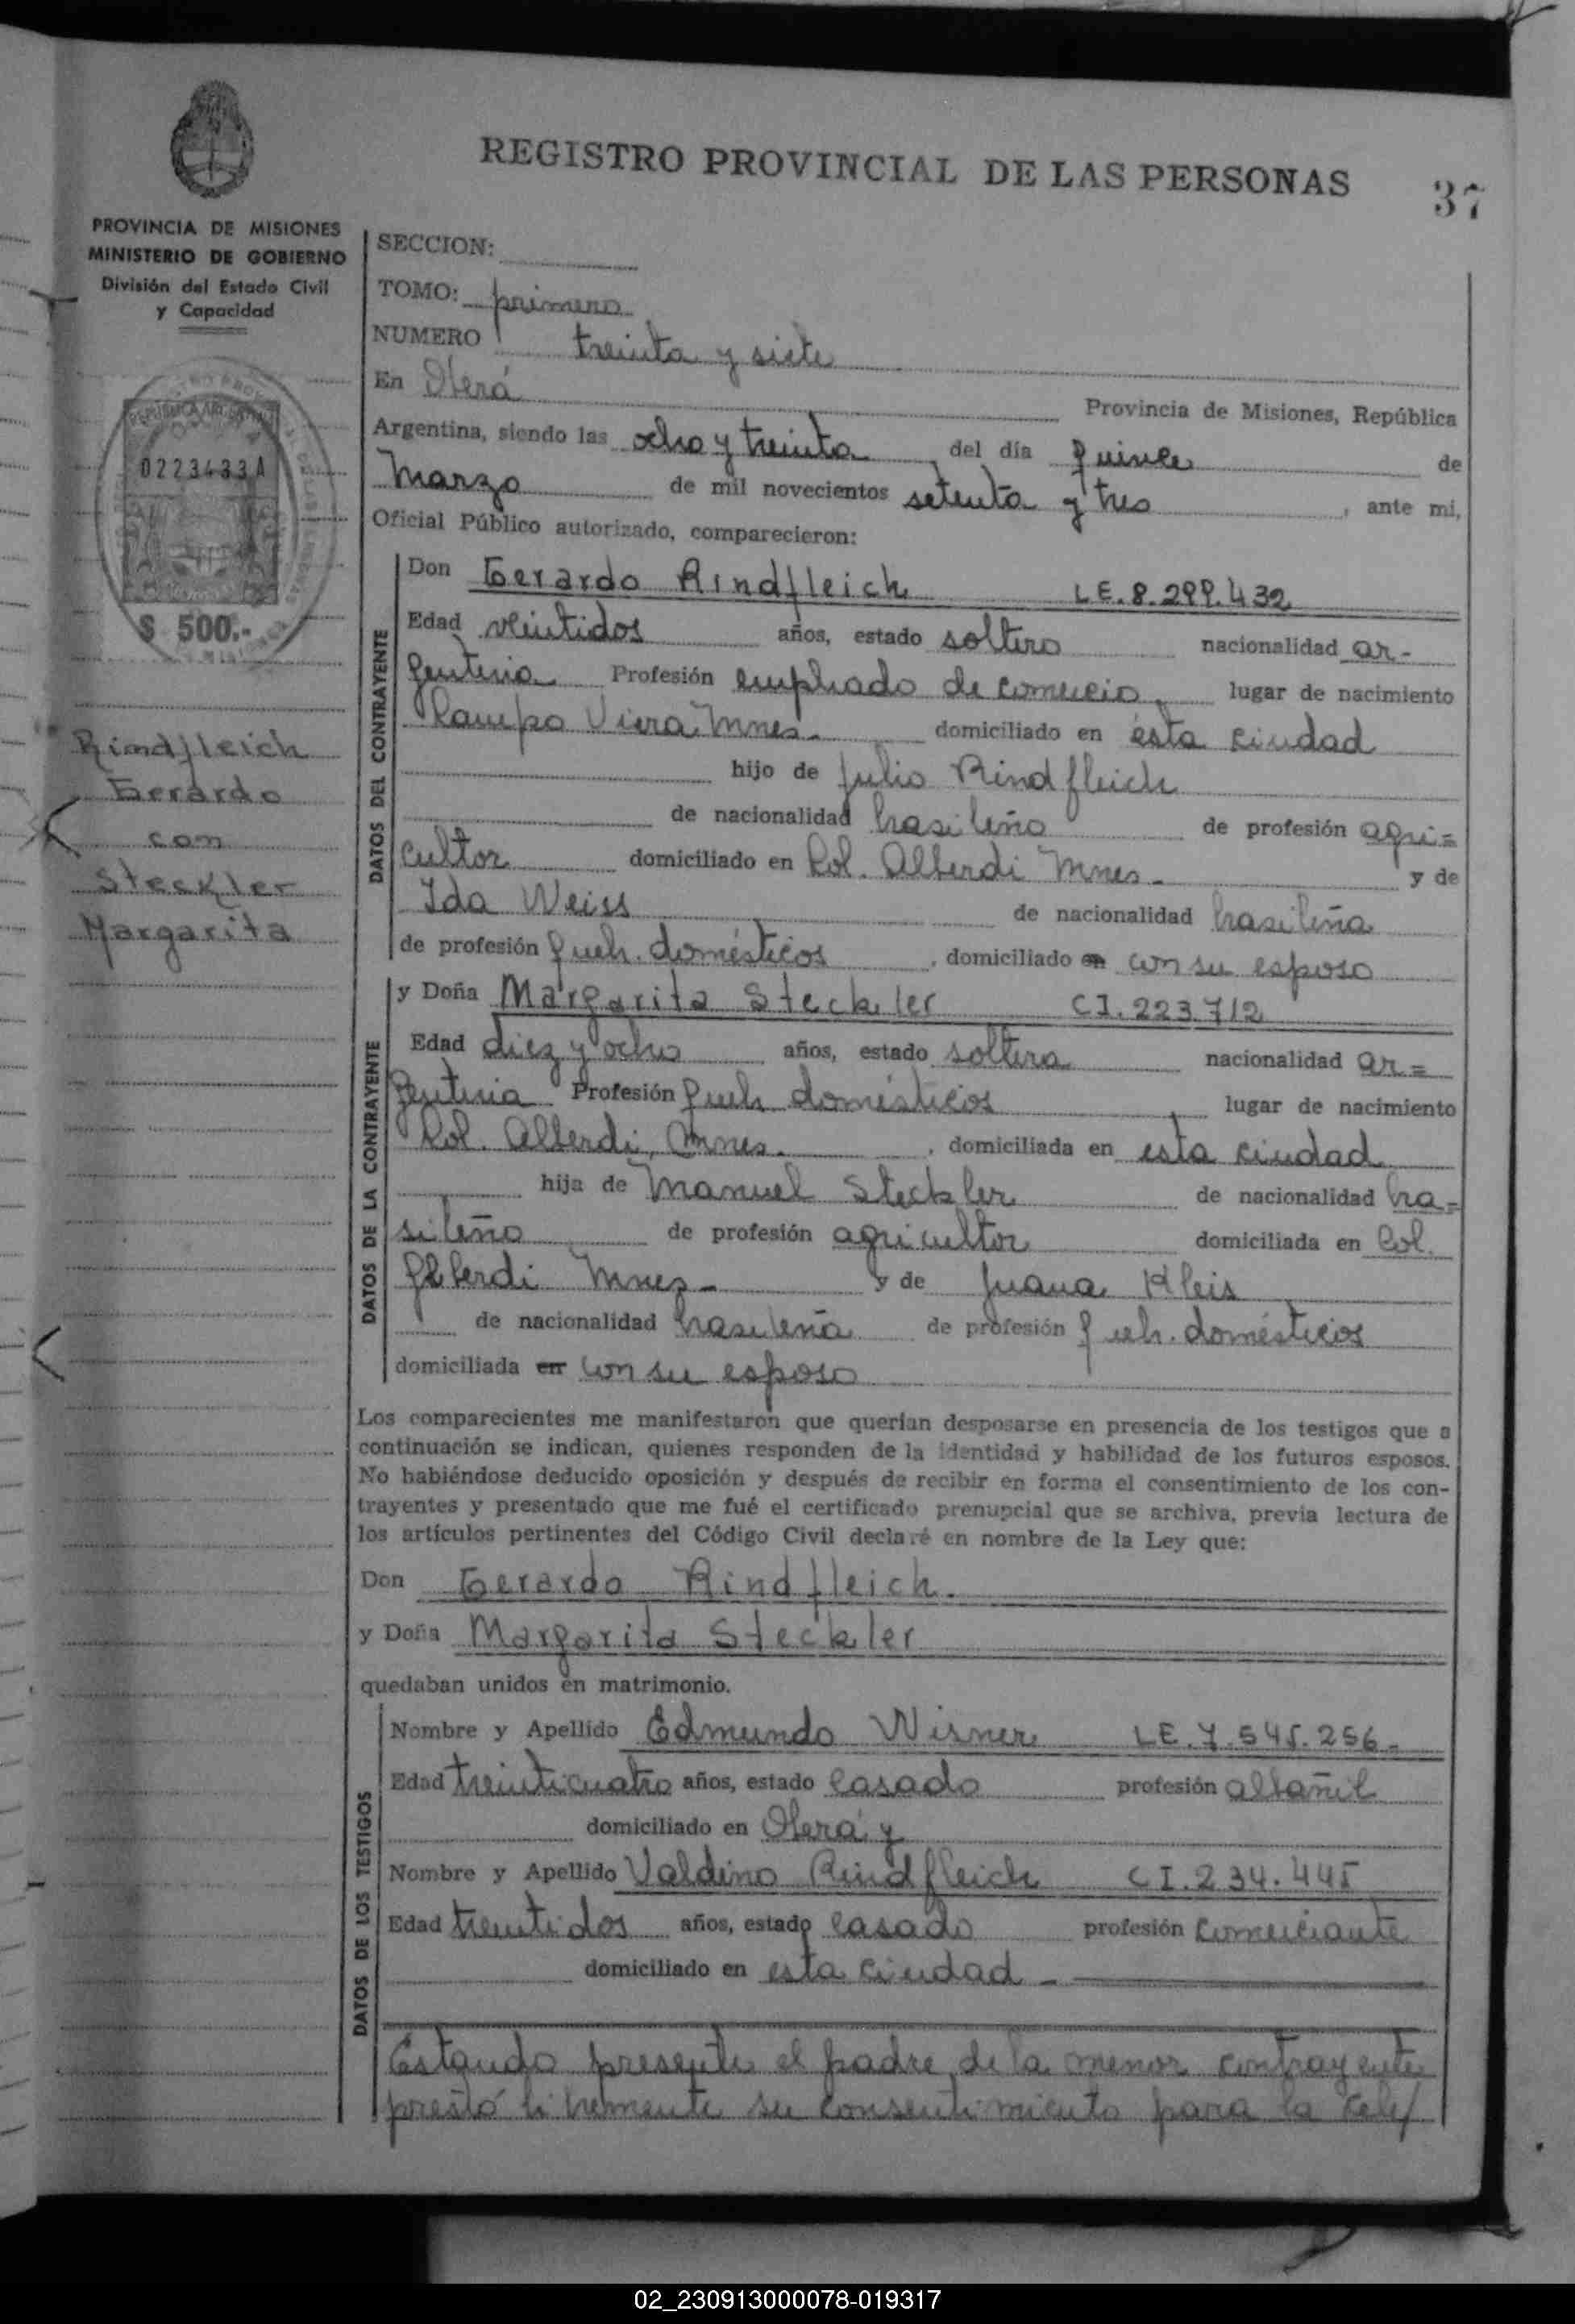 REGISTRO PROVINCIAL DE LAS PERSONAS
37
PROVINCIA DE MISIONES
MINISTERIO DE GOBIERNO
División del Estado Civil
y Capacidad
REPUBLICA ARGENTINA
0223433A
$ 500.-
Rindfleich
Gerardo
con
Steckler
Margarita
SECCION:
TOMO: primero
NUMERO treinta y siete
En Oberá Provincia de Misiones, República
Argentina, siendo las ocho y treinta del día quince de
Marzo de mil novecientos setenta y tres, ante mi,
Oficial Público autorizado, comparecieron:
DATOS DEL CONTRAYENTE
Don Gerardo Rindfleich LE. 8.299.432
Edad veintidos años, estado soltero nacionalidad ar-
gentina Profesión empleado de comercio, lugar de nacimiento
Campo Viera, Mnes. domiciliado en ésta ciudad
hijo de Julio Rindfleich
de nacionalidad brasileño de profesión agri=
cultor domiciliado en Col. Alberdi Mnes. y de
Ida Weiss de nacionalidad brasileña
de profesión queh. domésticos, domiciliado en con su esposo
DATOS DE LA CONTRAYENTE
y Doña Margarita Steckler CI. 223.712
Edad diez y ocho años, estado soltera nacionalidad ar=
gentina Profesión queh domésticos, lugar de nacimiento
Col. Alberdi, Mnes., domiciliada en esta ciudad
hija de Manuel Steckler de nacionalidad bra=
sileño de profesión agricultor domiciliada en Col.
Alberdi Mnes- y de Juana Kleis
de nacionalidad brasileña de profesión queh. domésticos
domiciliada en con su esposo
Los comparecientes me manifestaron que querían desposarse en presencia de los testigos que a
continuación se indican, quienes responden de la identidad y habilidad de los futuros esposos.
No habiéndose deducido oposición y después de recibir en forma el consentimiento de los con-
trayentes y presentado que me fué el certificado prenupcial que se archiva, previa lectura de
los artículos pertinentes del Código Civil declaré en nombre de la Ley que:
Don Gerardo Rindfleich.
y Doña Margarita Steckler
quedaban unidos en matrimonio.
DATOS DE LOS TESTIGOS
Nombre y Apellido Edmundo Wisner LE. 7.545.256-
Edad treinticuatro años, estado casado profesión albañil
domiciliado en Oberá y
Nombre y Apellido Valdino Rindfleich CI. 234.445
Edad treintidos años, estado casado profesión comerciante
domiciliado en esta ciudad -
Estando presente el padre de la menor contrayente
prestó libremente su consentimiento para la cele/
02_230913000078-019317